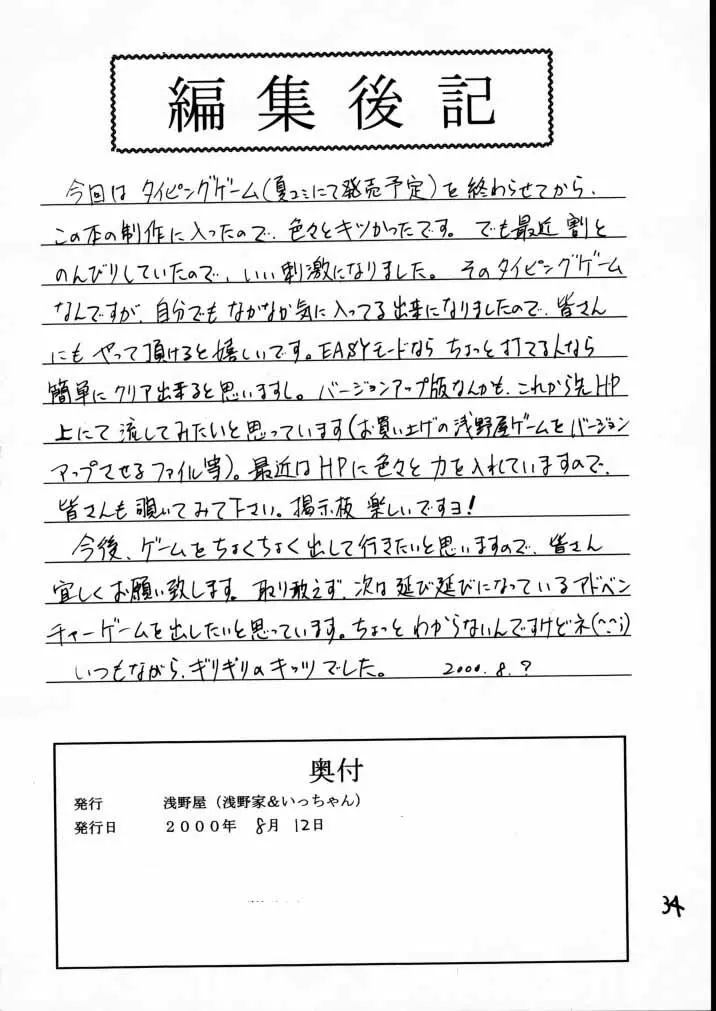 編集後記
今回は タイピングゲーム(夏コミにて発売予定)を 終わらせてから、
この本の制作に入ったので、色々とキツかったです。でも最近 割と
のんびりしていたので、いい刺激になりました。そのタイピングゲーム
なんですが、自分でも なかなか気に入ってる出来になりましたので、皆さん
にも やって頂けると嬉しいです。EASYモードなら ちょっと打てる人なら
簡単に クリア出来ると思いますし。バージョンアップ版なんかも、これから先HP
上にて 流してみたいと思っています(お買い上げの浅野屋ゲームをバージョン
アップさせるファイル等)。最近はHPに色々と 力を入れていますので、
皆さんも 覗いてみて下さい。掲示板 楽しいですヨ!
今後、ゲームをちょくちょく出して行きたいと思いますので、皆さん
宜しくお願い致します。取り敢えず、次は延び延びになっているアドベン
チャーゲームを出したいと思っています。ちょっと わからないんですけどネ(^^;)
いつもながら、ギリギリのキッツでした。 2000.8.?
奥付
発行 浅野屋(浅野家&いっちゃん)
発行日 2000年 8月 12日
34